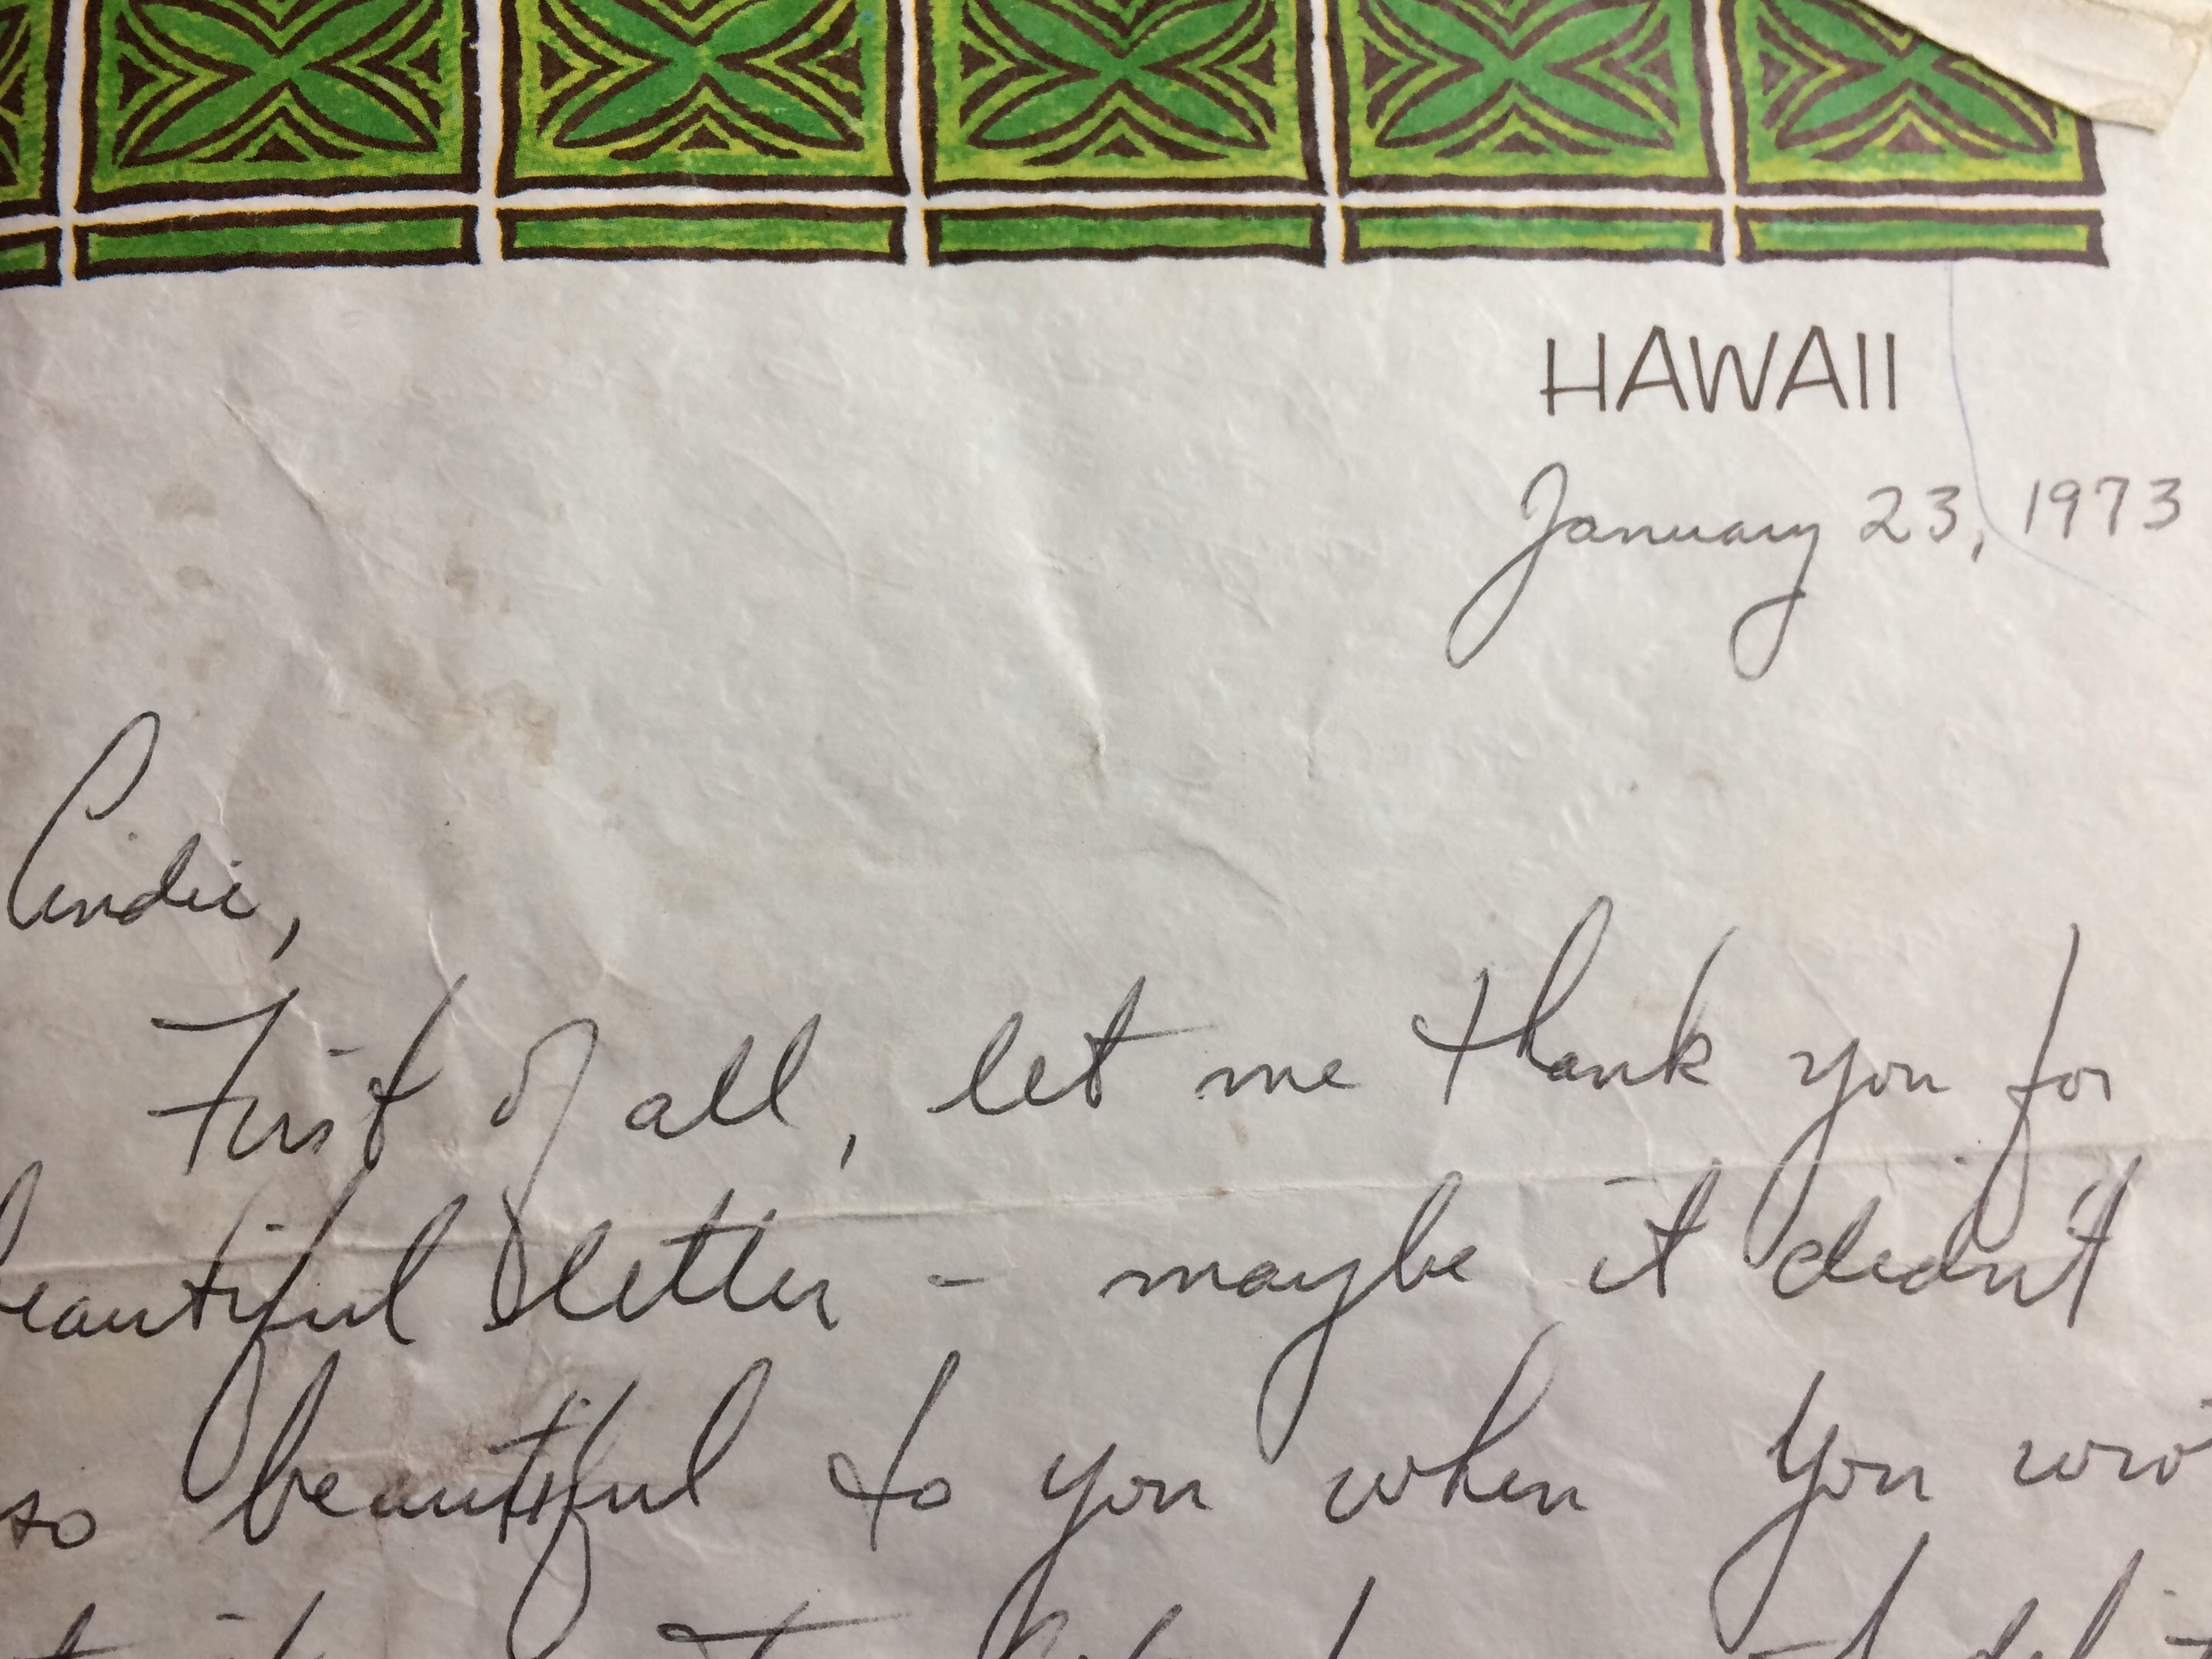 HAWAII
January 23, 1973
Cindie,
First of all, let me thank you for
beautiful letter - maybe it didn't
so beautiful to you when you